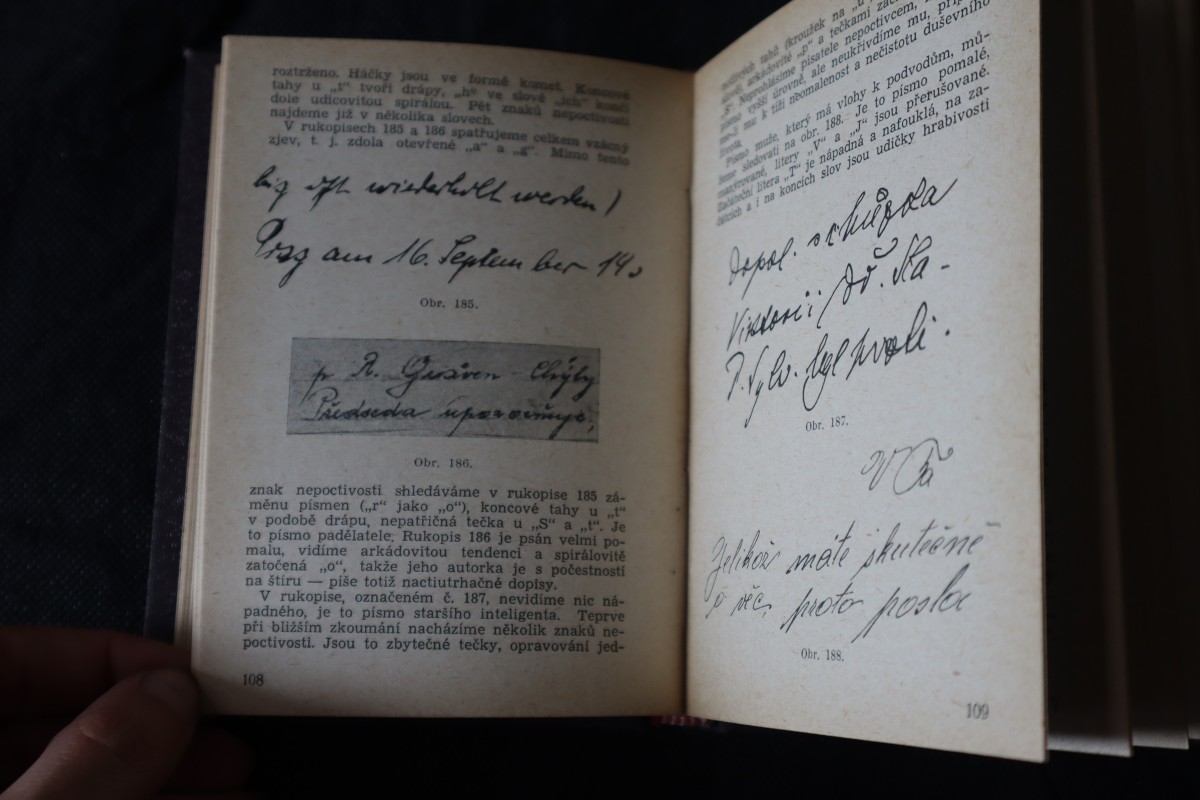 roztrženo. Háčky jsou ve formě komet. Koncové
tahy u „t“ tvoří drápy, „h“ ve slově „ich“ končí
dole udicovitou spirálou. Pět znaků nepoctivosti
najdeme již v několika slovech.
V rukopisech 185 a 186 spatřujeme celkem vzácný
zjev, t. j. zdola otevřené „a“ a „g“. Mimo tento
oft wiederholt werden!
Prag am 16. September 19
Obr. 185.
p. R. Chyby
Předseda upozorňuje,
Obr. 186.
znak nepoctivosti shledáváme v rukopise 185 zá-
měnu písmen („r“ jako „o“), koncové tahy u „t“
v podobě drápu, nepatřičná tečka u „S“ a „t“. Je
to písmo padělatele. Rukopis 186 je psán velmi po-
malu, vidíme arkádovitou tendenci a spirálovitě
zatočená „o“, takže jeho autorka je s počestností
na štíru — píše totiž nactiutrhačné dopisy.
V rukopise, označeném č. 187, nevidíme nic ná-
padného, je to písmo staršího inteligenta. Teprve
při bližším zkoumání nacházíme několik znaků ne-
poctivosti. Jsou to zbytečné tečky, opravování jed-
108
notlivých tahů (kroužek na „u
arkádovité „p“ a tečkami
Neprohlásíme pisatele nepoctivcem,
vyšší úrovně, ale neukřivdíme mu,
me-li mu k tíži neomalenost a nečistotu duševního
života.
Písmo muže, který má vlohy k podvodům, mů-
žeme sledovati na obr. 188. Je to písmo pomalé,
manýrované, litery „V“ a „J“ jsou přerušované.
Začáteční litera „T“ je nápadná a nafouklá, na za-
čátcích a i na koncích slov jsou udičky hrabivosti
Dopol. schůzka
Obr. 187.
Jelikož máte skutečně
o věc, proto
Obr. 188.
109